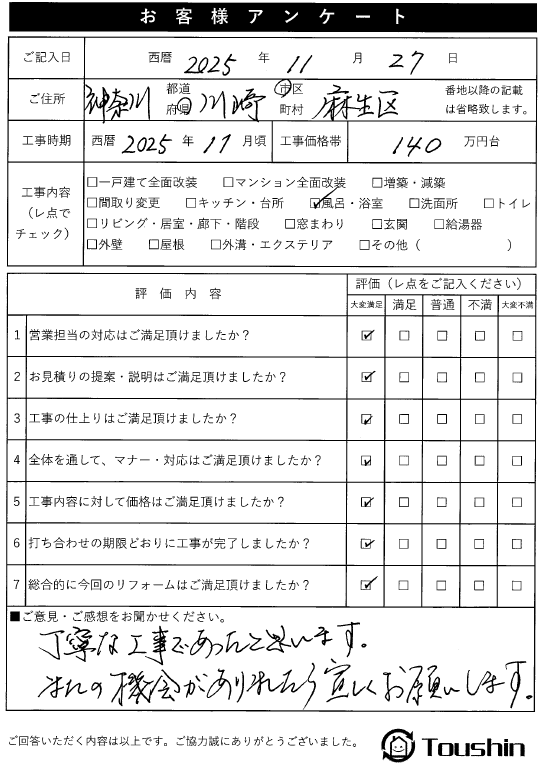 お客様アンケート
ご記入日 西暦 2025 年 11 月 27 日
ご住所 神奈川 都道府県 川崎 市区町村 麻生区 番地以降の記載は省略致します。
工事時期 西暦 2025 年 11 月頃 工事価格帯 140 万円台
工事内容（レ点でチェック）
□一戸建て全面改装 □マンション全面改装 □増築・減築
□間取り変更 □キッチン・台所 ☑風呂・浴室 □洗面所 □トイレ
□リビング・居室・廊下・階段 □窓まわり □玄関 □給湯器
□外壁 □屋根 □外溝・エクステリア □その他（ ）
評価内容 評価（レ点をご記入ください）
大変満足 満足 普通 不満 大変不満
1 営業担当の対応はご満足頂けましたか？ ☑ □ □ □ □
2 お見積りの提案・説明はご満足頂けましたか？ ☑ □ □ □ □
3 工事の仕上りはご満足頂けましたか？ ☑ □ □ □ □
4 全体を通して、マナー・対応はご満足頂けましたか？ ☑ □ □ □ □
5 工事内容に対して価格はご満足頂けましたか？ ☑ □ □ □ □
6 打ち合わせの期限どおりに工事が完了しましたか？ ☑ □ □ □ □
7 総合的に今回のリフォームはご満足頂けましたか？ ☑ □ □ □ □
■ご意見・ご感想をお聞かせください。
丁寧な工事であったと思います。
またの機会がありましたら宜しくお願いします。
ご回答いただく内容は以上です。ご協力誠にありがとうございました。
Toushin